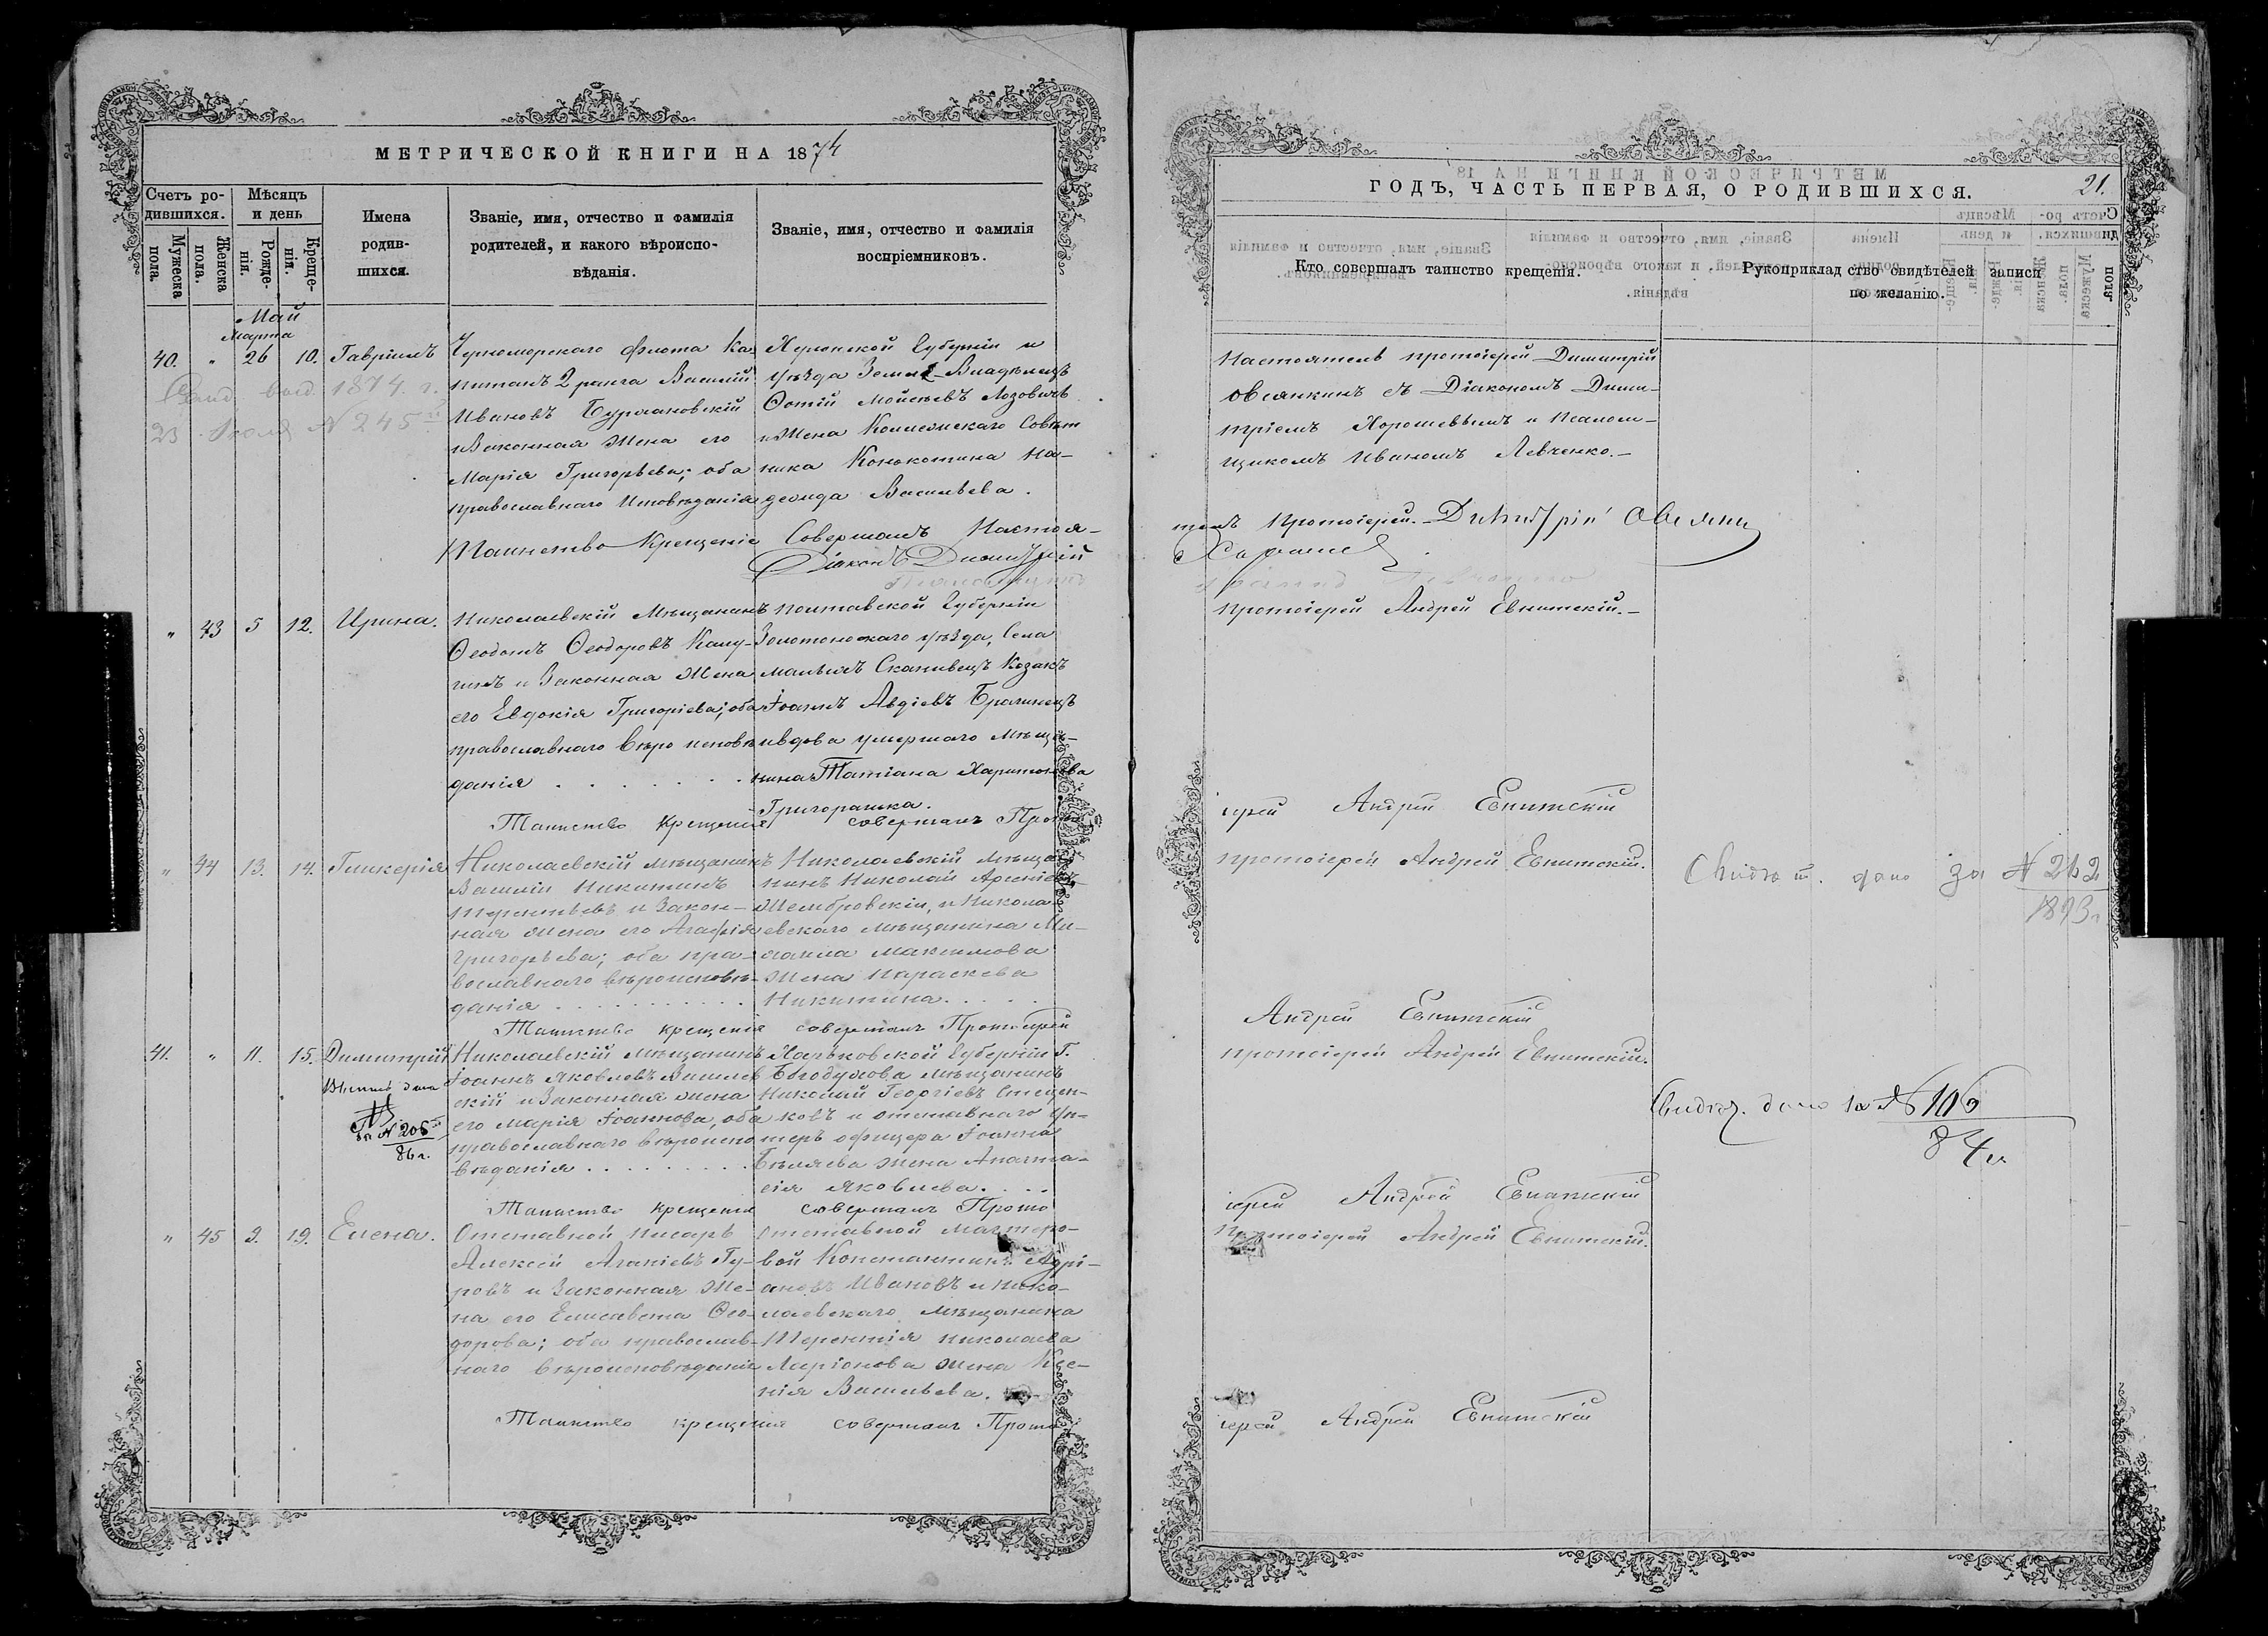 МЕТРИЧЕСКОЙ КНИГИ НА 1874
Счетъ ро-
дившихся.
Мѣсяцъ
и день
Мужеска
пола.
Женска
пола.
Рожде-
нія.
Креще-
нія.
Имена
родив-
шихся.
Званіе, имя, отчество и фамилія
родителей, и какого вѣроиспо-
вѣданія.
Званіе, имя, отчество и фамилія
воспріемниковъ.
Май
Марта
40. " 26 10. Гавріилъ
23 Іюля № 245
Черноморскаго флота Ка-
питанъ 2 ранга Василій
Ивановъ Бурхановскій
и Законная Жена его
Марія Григорьева; оба
православнаго Исповѣданія
Херсонской Губерніи и
уѣзда Землѣ-Владѣлецъ
Фотій Мойсѣевъ Лозовичъ
и Жена Коллежскаго Совѣт
ника Конокотина На-
дежда Васильева.
Таинство Крещенія Совершалъ Настоя-
Діаконъ Димитрій
" 43 5 12. Ирина.
Николаевскій Мѣщанинъ
Ѳеодотъ Ѳеодоровъ Калу-
гинъ и Законная Жена
его Евдокія Григоріева; оба
православнаго вѣро исповѣ-
данія
Полтавской Губерніи
Золотоноскаго уѣзда, Села
Малыхъ Канивецъ Козакъ
Іоаннъ Авдіевъ Брагинецъ
и вдова умершаго мѣща-
нина Татіана Харитонова
Григорашка.
Таинство Крещенія совершалъ Прото
" 44 13. 14. Гликерія
Николаевскій мѣщанинъ
Василій Никитинъ
Терентьевъ и Закон-
ная жена его Агафія
Григорьева; оба пра-
вославнаго вѣроисповѣ-
данія
Николаевскій мѣща-
нинъ Николай Арсеніевъ
Жембровскій, и Никола-
евскаго мѣщанина Ми-
хаила Максимова
жена Параскева
Никитина.
Таинство крещенія совершалъ Протоіерей
41. " 11. 15. Димитрій
за № 206
86 г.
Николаевскій Мѣщанинъ
Іоаннъ Яковлевъ
скій и Законная жена
его Марія Іоаннова, оба
православнаго вѣроиспо
вѣданія
Харьковской Губерніи Г.
Богодухова мѣщанинъ
Николай Георгіевъ Стецен-
ковъ и отставнаго Ун-
теръ офицера Іоанна
Бѣляева жена Анаста-
сія Яковлева.
Таинство крещенія совершалъ Прото
" 45 9. 19. Елена.
Отставной писарь
Алексѣй Агапіевъ Гу-
ровъ и Законная Же-
на его Елисавета Ѳео-
дорова; оба православ-
наго вѣроисповѣданія
Отставной мастеро-
вой Константинъ Адрі-
ановъ Ивановъ и Нико-
лаевскаго мѣщанина
Терентія Николаева
Ларіонова жена Ксе-
нія Васильева.
Таинство крещенія совершалъ Прото
ГОДЪ, ЧАСТЬ ПЕРВАЯ, О РОДИВШИХСЯ.
21.
Кто совершалъ таинство крещенія.
Рукоприкладство свидѣтелей записи
по желанію.
Настоятель протоіерей Димитрій
Овсянкинъ съ Діакономъ Дими-
тріемъ Хорошевымъ и Псалом-
щикомъ Иваномъ Левченко.
тель Протоіерей Димитрій Овсянкин
Хорошев
Левченко
Протоіерей Андрей Евнитскій.
іерей Андрей Евнитскій
Протоіерей Андрей Евнитскій.
Свидѣт. дано за № 212
1893 г.
Андрей Евнитскій
Протоіерей Андрей Евнитскій.
Свидѣт. дано за № 106
84 г.
іерей Андрей Евнитскій
Протоіерей Андрей Евнитскій.
іерей Андрей Евнитскій